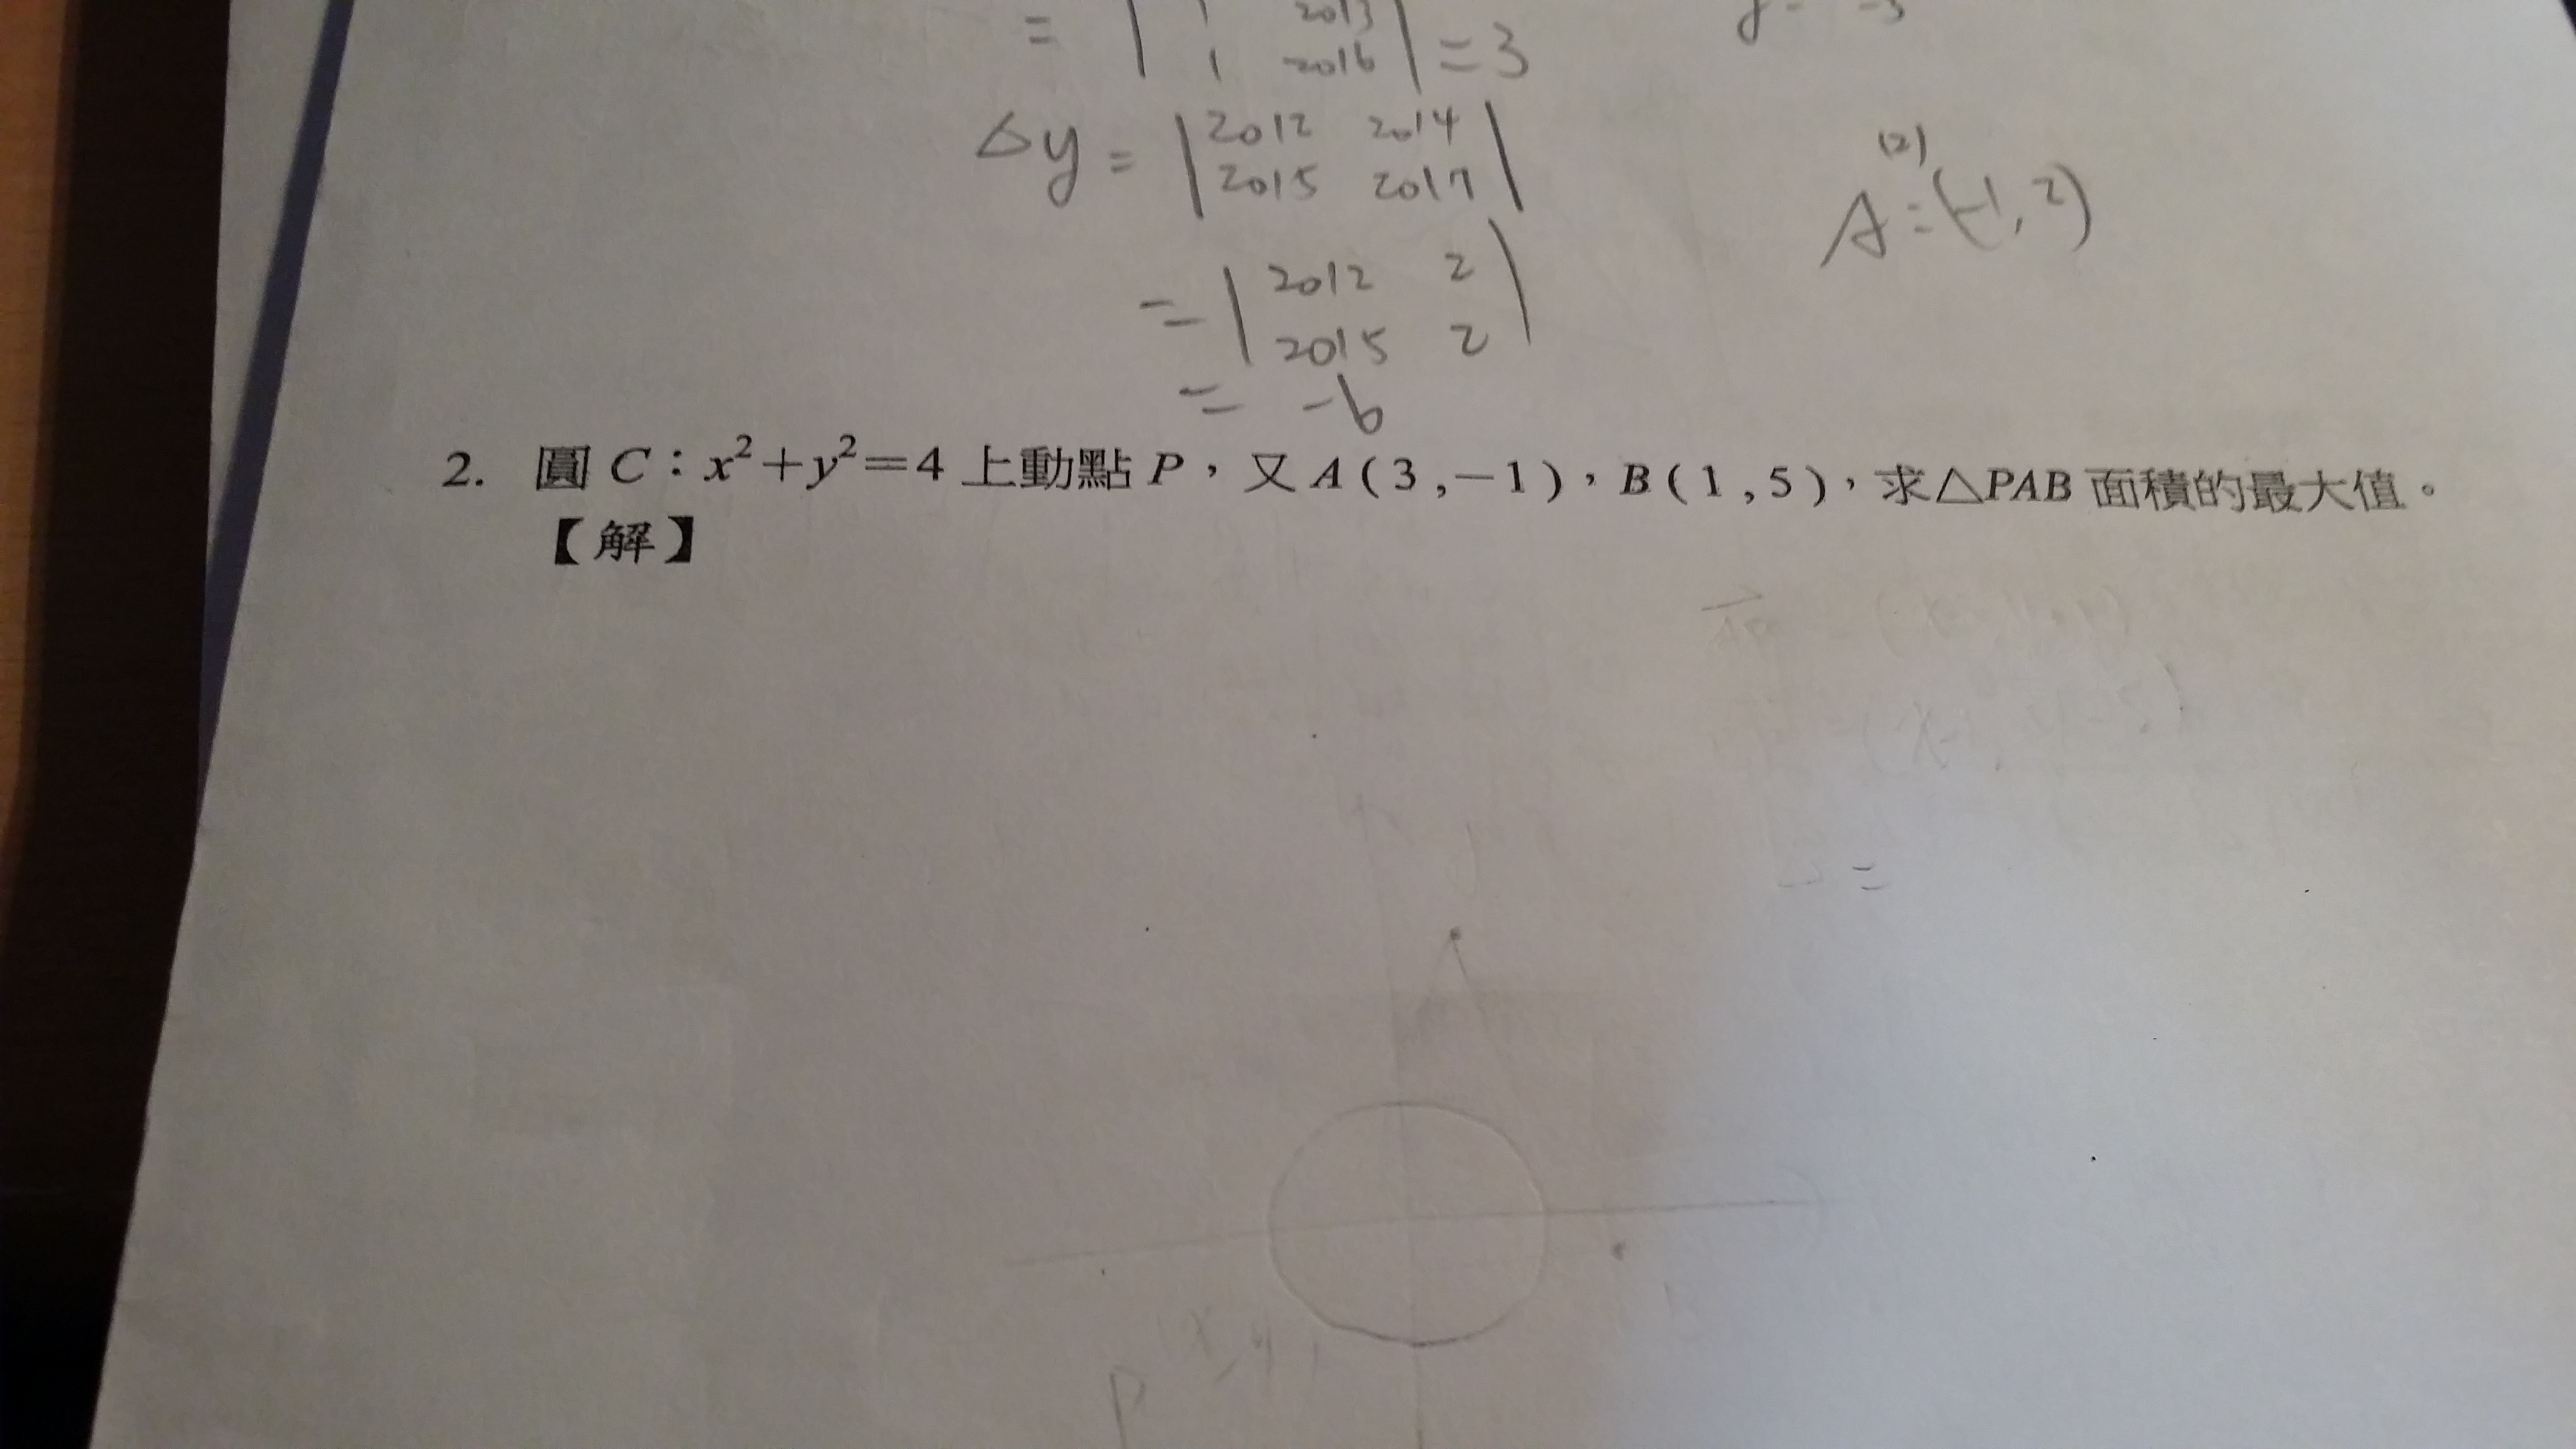 = | 1 2013 |
| 1 2016 | = 3
Δy = | 2012 2014 |
| 2015 2017 |
(2)
A = (-1, 2)
= | 2012 2 |
| 2015 2 |
= -6
2. 圓 C：x²+y²=4 上動點 P，又 A(3,−1)，B(1,5)，求△PAB 面積的最大值。
【解】
=
P (x, y)